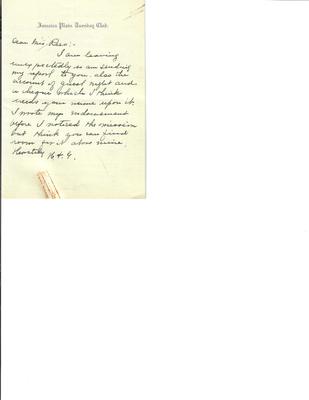 Jamaica Plain Tuesday Club.
Dear Mrs. 
I am leaving
unexpectedly so am sending
my report to you. also the
account of guest night and
a cheque which I think
needs your name upon it.
I wrote my endorsement
before I noticed the omission
but think you can find
room for it above mine
Heartily